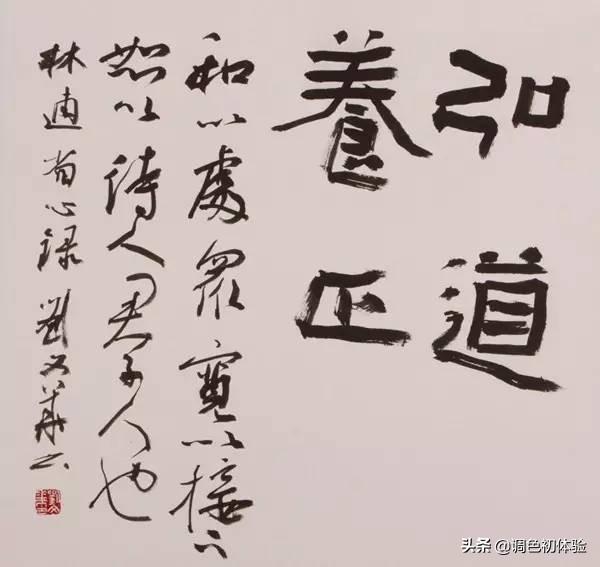 弘道
養正
和以處眾寬以接下
恕以待人君子人也
林逋省心錄 劉文華书
头条 @调色初体验